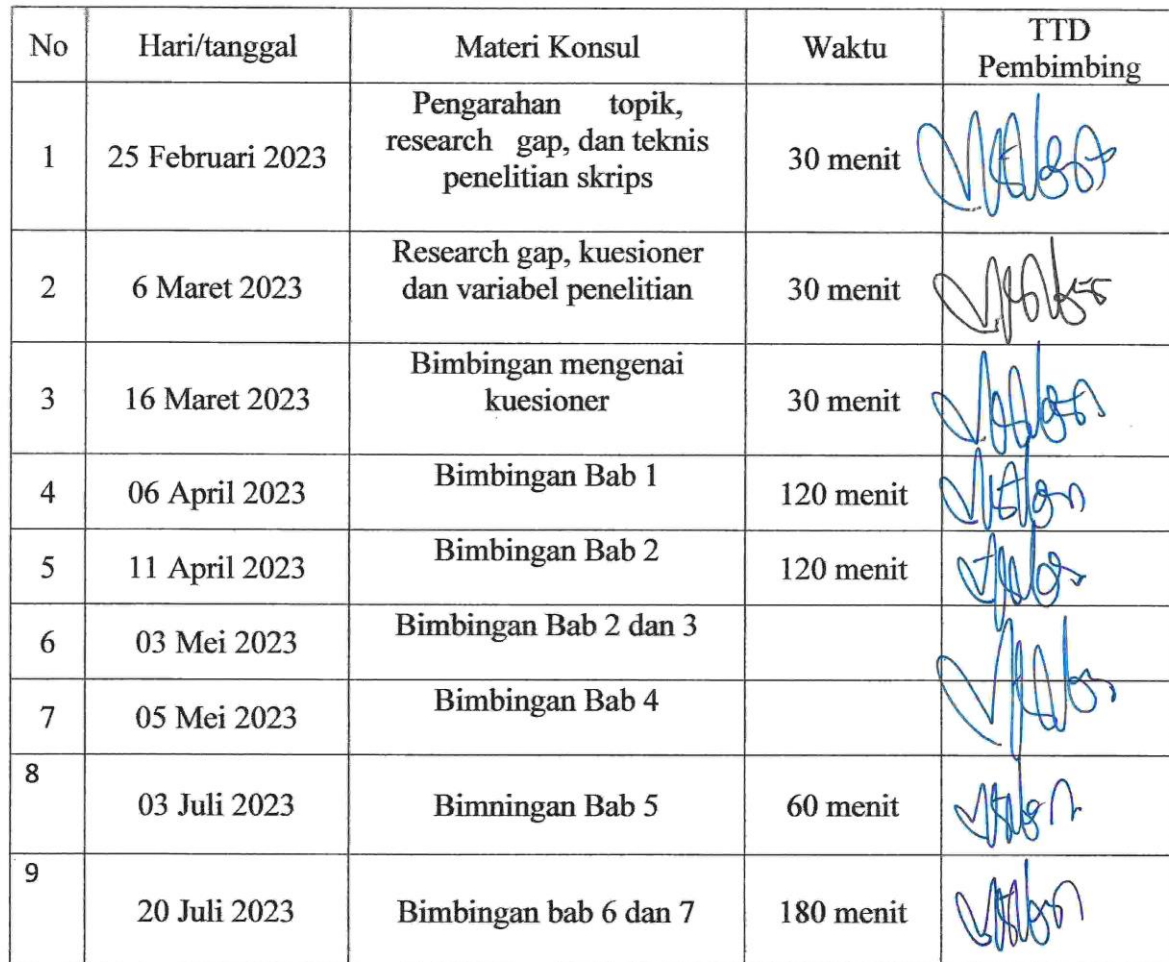 No Hari/tanggal Materi Konsul Waktu TTD
Pembimbing
1 25 Februari 2023 Pengarahan topik,
research gap, dan teknis
penelitian skrips 30 menit
2 6 Maret 2023 Research gap, kuesioner
dan variabel penelitian 30 menit
3 16 Maret 2023 Bimbingan mengenai
kuesioner 30 menit
4 06 April 2023 Bimbingan Bab 1 120 menit
5 11 April 2023 Bimbingan Bab 2 120 menit
6 03 Mei 2023 Bimbingan Bab 2 dan 3
7 05 Mei 2023 Bimbingan Bab 4
8 03 Juli 2023 Bimningan Bab 5 60 menit
9 20 Juli 2023 Bimbingan bab 6 dan 7 180 menit